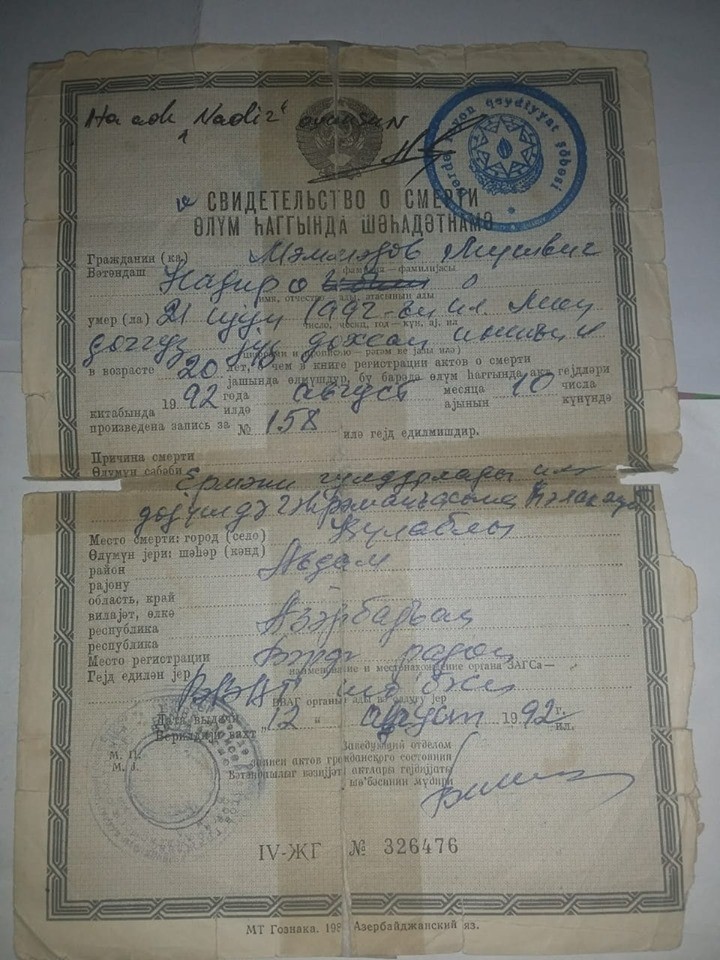 Nadir
Bərdə rayon qeydiyyat şöbəsi
СВИДЕТЕЛЬСТВО О СМЕРТИ
ӨЛҮМ ҺАГГЫНДА ШӘҺАДӘТНАМӘ
Гражданин (ка) Мәммәдов Мүшвиг
Вәтәндаш
фамилия—фамилијасы
Надир о
имя, отчество—ады, атасынын ады
умер (ла) 21 ијул 1992-ҹи ил. Мин
число, месяц, год—күн, ај, ил
доггуз јүз дохсан икинҹи ил
(цифрами и прописью—рәгәм вә јазы илә)
в возрасте 20 лет, о чем в книге регистрации актов о смерти
јашында өлмүшдүр, бу барәдә өлүм һаггында акт гејдләри
19 92 года август месяца 10 числа
китабында илдә ајынын күнүндә
произведена запись за № 158 илә гејд едилмишдир.
Причина смерти
Өлүмүн сәбәби
Ермәни гулдурлары илә
дөјүшдә гәһрәманҹасына һәлак олуб
Место смерти: город (село)
Өлүмүн јери: шәһәр (кәнд)
район Ағдам
рајону
область, край
вилајәт, өлкә
республика Азәрбајҹан
республика
Место регистрации Бәрдә рајон
наименование и местонахождение органа ЗАГСа—
Гејд едилән јер
ВВАГ шө'бәси
ВВАГ органынын ады вә олдуғу јер
Дата выдачи 12 " август 1992 г.
Верилдији вахт ил.
М. П.
М. Ј.
Заведующий отделом
записи актов гражданского состояния
Вәтәндашлыг вәзијјәти актлары гејдијјаты
шө'бәсинин мүдири
IV-ЖГ № 326476
МТ Гознака. 198 Азербайджанский яз.